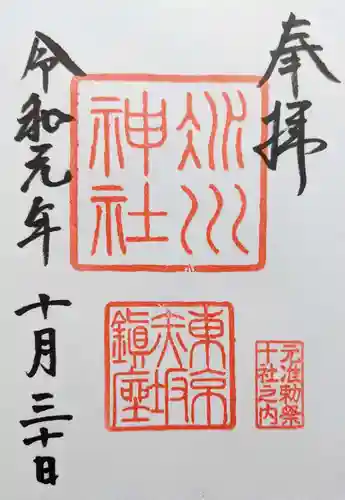 奉拝
氷川
神社
東京
赤坂
鎮座
元准勅祭
十社之内
令和元年
十月三十日